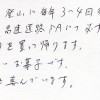 登山に毎年3~4回
高速道路PAにて必ず
を買い帰ります。
お菓子です。
喜んでいます。